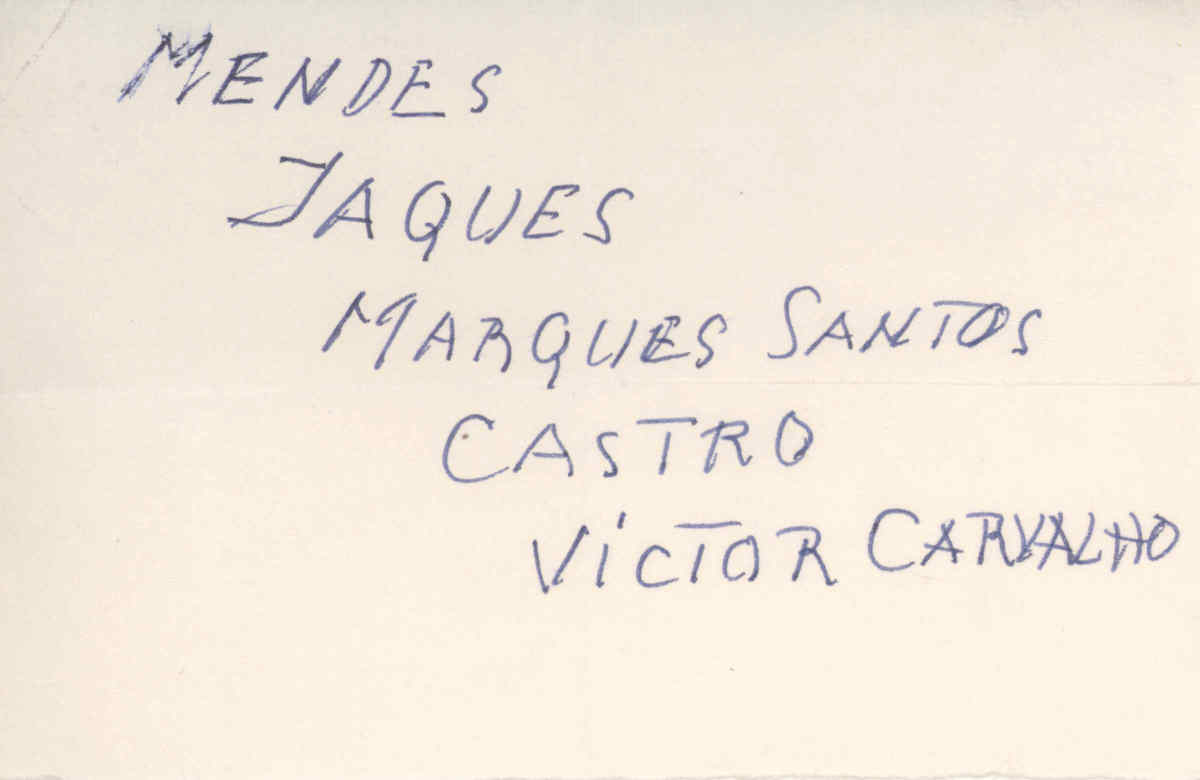 MENDES
JAQUES
MARQUES SANTOS
CASTRO
VÍCTOR CARVALHO